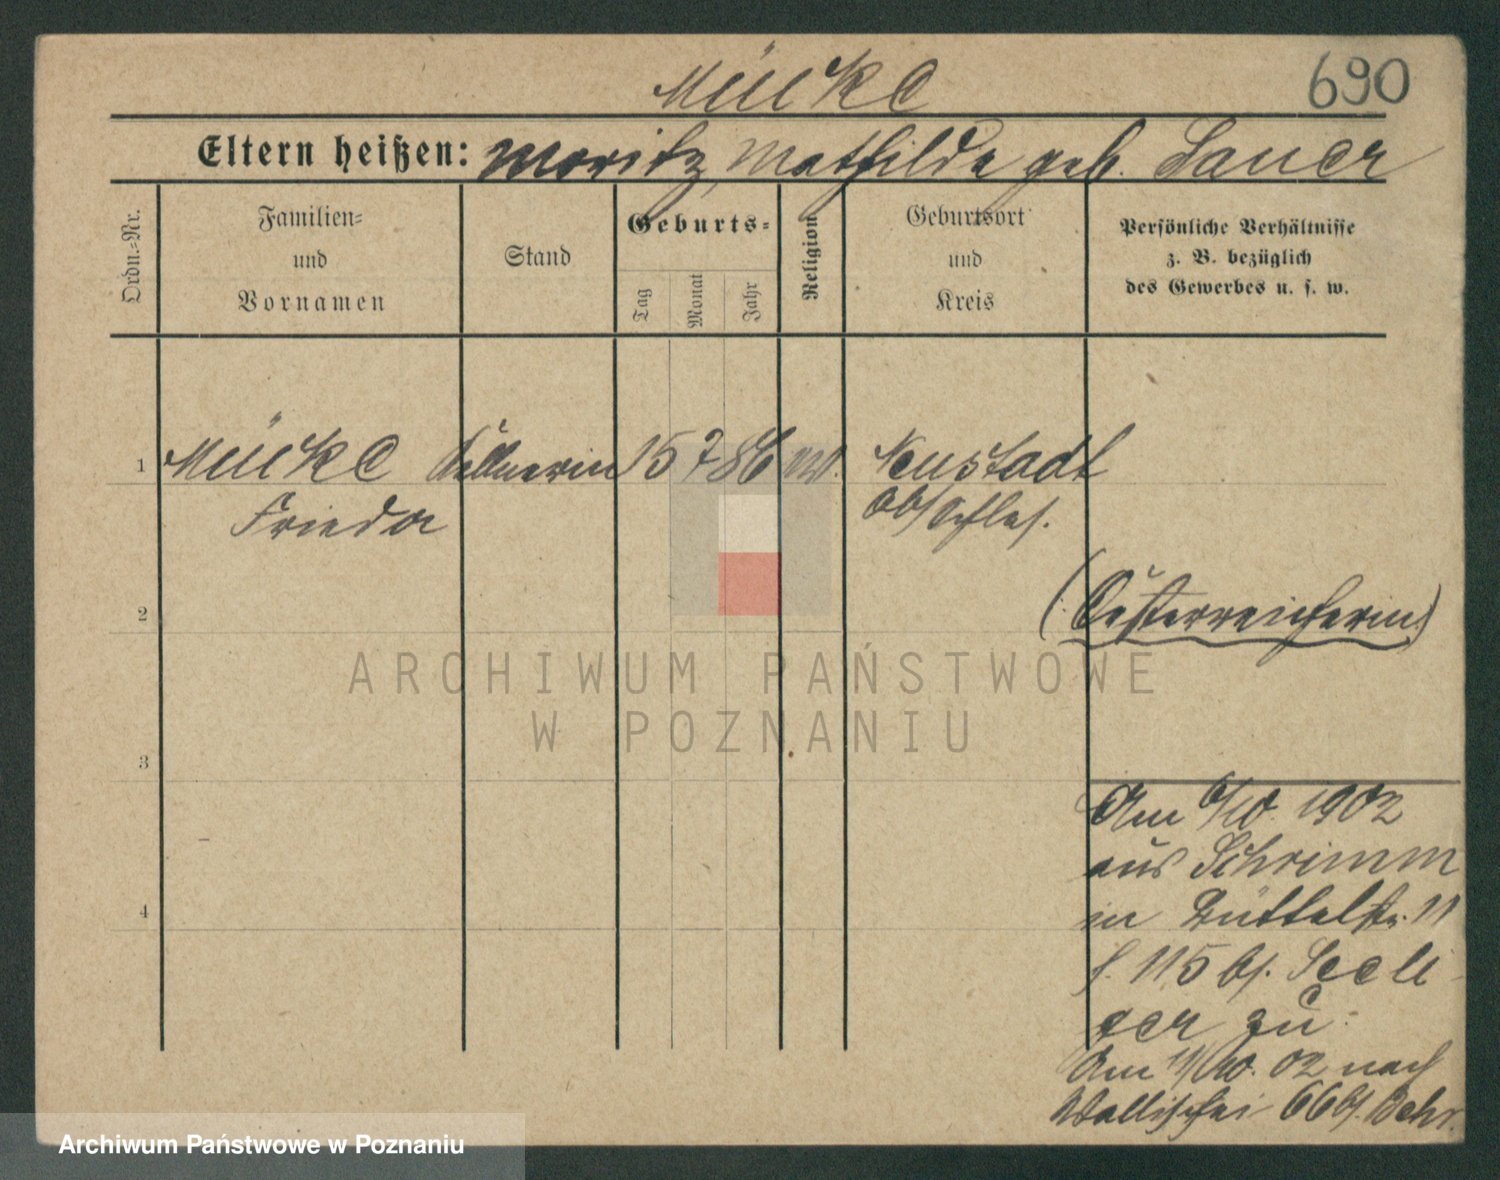 Mücke
690
Eltern heißen: Moritz, Mathilde geb. Lauer
Ordn.-Nr.
Familien-
und
Vornamen
Stand
Geburts-
Tag
Monat
Jahr
Religion
Geburtsort
und
Kreis
Persönliche Verhältnisse
z. B. bezüglich
des Gewerbes u. s. w.
1 Mücke Kellnerin 15 7 86 Neustadt
Frieda Ob/Schles.
(Österreicherin)
2
3
4
Am 6/10. 1902
aus Schrimm
in Büttelstr. 11
f. 115 bf. Seeli-
ger zu.
Am 11/10. 02 nach
Wallischei 66 bf. Behr.
ARCHIWUM PAŃSTWOWE
W POZNANIU
Archiwum Państwowe w Poznaniu